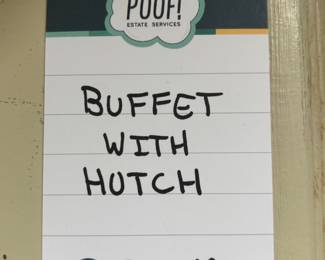 POOF!
ESTATE SERVICES
BUFFET
WITH
HUTCH